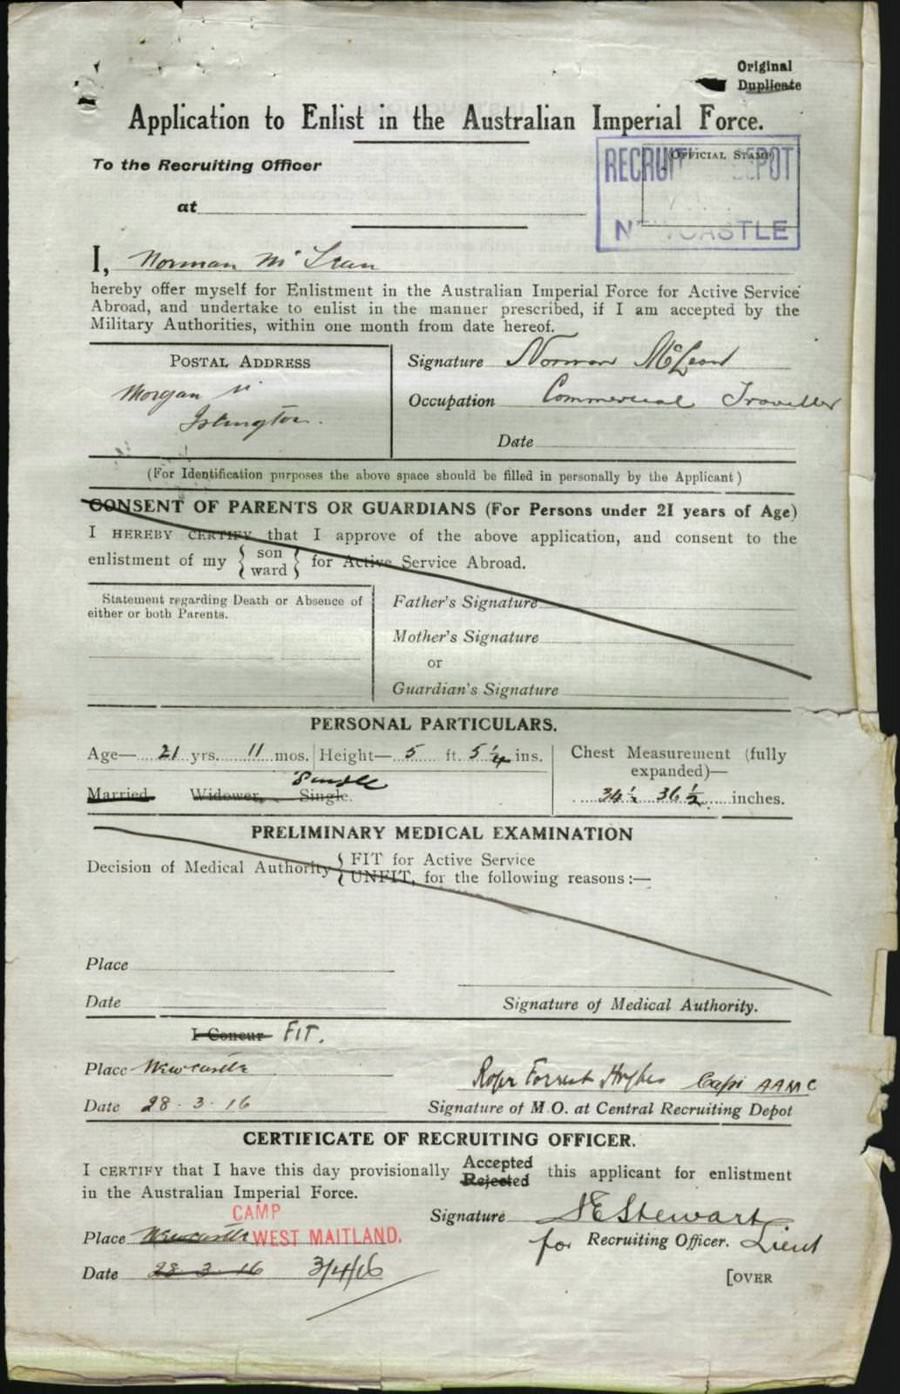 Original
Duplicate
Application to Enlist in the Australian Imperial Force.
To the Recruiting Officer
OFFICIAL STAMP
RECRUIT DEPOT
NEWCASTLE
at
I, Norman
hereby offer myself for Enlistment in the Australian Imperial Force for Active Service
Abroad, and undertake to enlist in the manner prescribed, if I am accepted by the
Military Authorities, within one month from date hereof.
POSTAL ADDRESS
Morgan
Islington.
Signature Norman
Occupation Commercial Traveller
Date
(For Identification purposes the above space should be filled in personally by the Applicant)
CONSENT OF PARENTS OR GUARDIANS (For Persons under 21 years of Age)
I HEREBY CERTIFY that I approve of the above application, and consent to the
enlistment of my { son ward } for Active Service Abroad.
Statement regarding Death or Absence of
either or both Parents.
Father's Signature
Mother's Signature
or
Guardian's Signature
PERSONAL PARTICULARS.
Age— 21 yrs. 11 mos. Height— 5 ft. 5 1/4 ins.
Chest Measurement (fully
expanded)—
Single
Married Widower, Single.
34 1/2 36 1/2 inches.
PRELIMINARY MEDICAL EXAMINATION
Decision of Medical Authority { FIT for Active Service
UNFIT, for the following reasons:—
Place
Date
Signature of Medical Authority.
I Concur FIT.
Place Newcastle
Roger Forrest Hughes Capt AAMC
Date 28.3.16
Signature of M.O. at Central Recruiting Depot
CERTIFICATE OF RECRUITING OFFICER.
I CERTIFY that I have this day provisionally Accepted Rejected this applicant for enlistment
in the Australian Imperial Force.
CAMP
Place Newcastle WEST MAITLAND.
Signature Stewart
for Recruiting Officer. Lieut
Date 28 3 16 3/4/16
[OVER